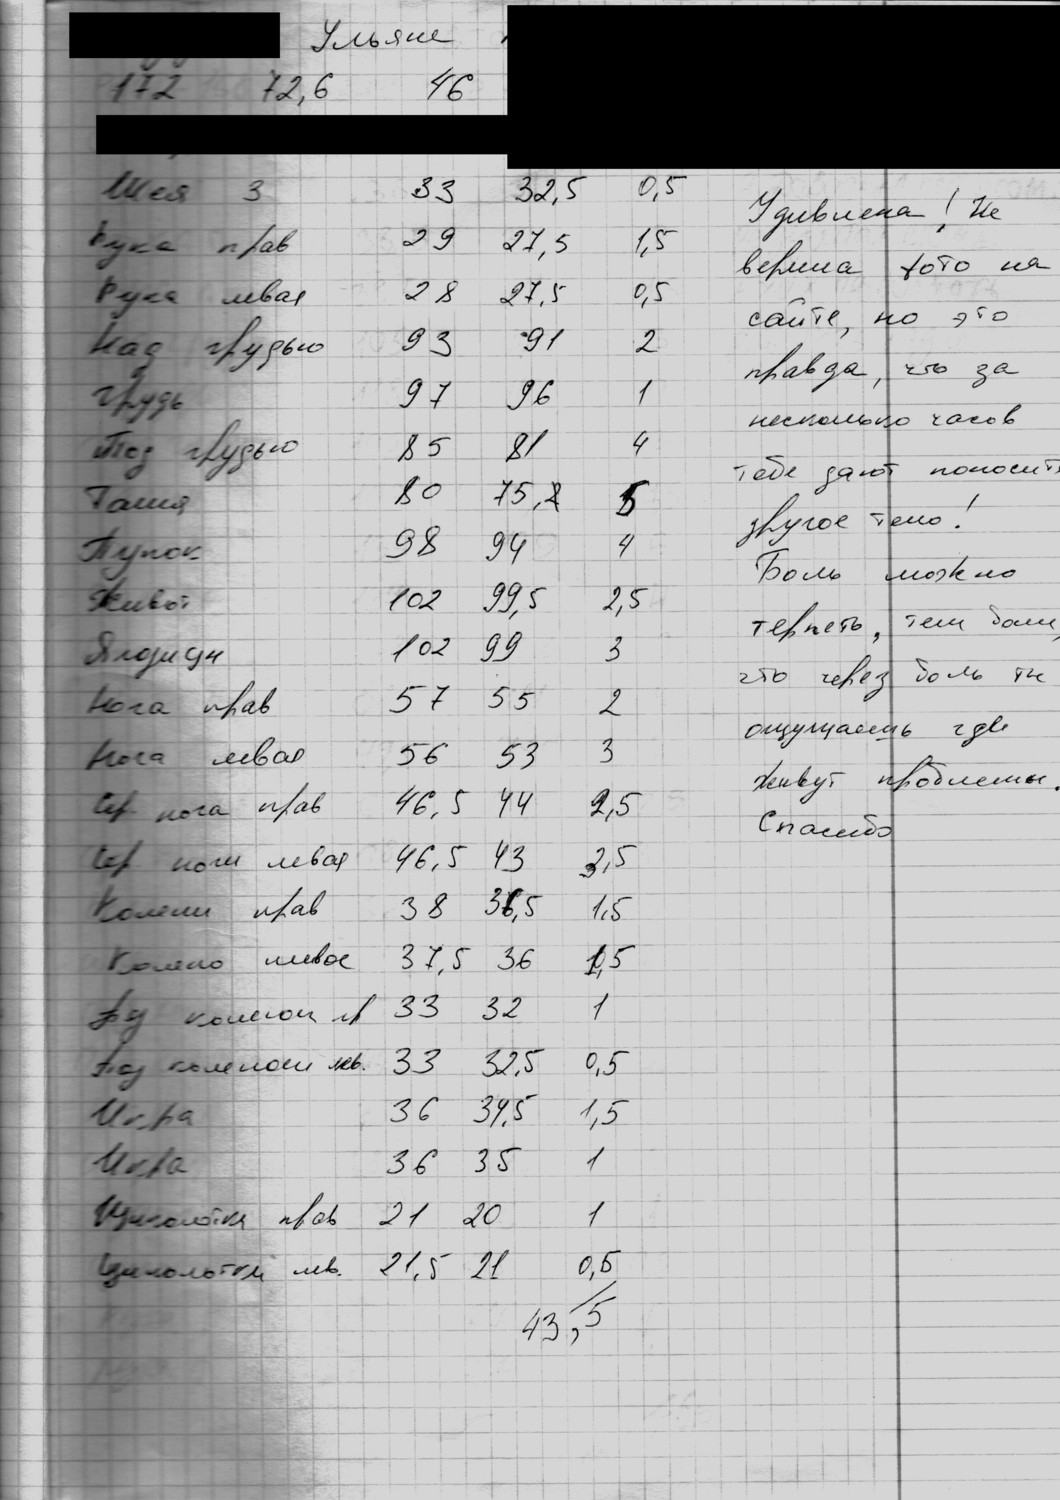 Ульяне
172 72,6 46
Шея 3 33 32,5 0,5
Рука прав 29 27,5 1,5
Рука левая 28 27,5 0,5
Над грудью 93 91 2
Грудь 97 96 1
Под грудью 85 81 4
Талия 80 75, 5
Пупок 98 94 4
Живот 102 99,5 2,5
Ягодицы 102 99 3
Нога прав 57 55 2
Нога левая 56 53 3
Ср. нога прав 46,5 44 2,5
Ср. ноги левая 46,5 43 3,5
Колени прав 38 36,5 1,5
Колено левое 37,5 36 1,5
Под коленом пр 33 32 1
Под коленом лев. 33 32,5 0,5
Икра 36 34,5 1,5
Икра 36 35 1
Щиколотка прав 21 20 1
Щиколотки лев. 21,5 21 0,5
43,5
Удивлена! Не
верила фото на
сайте, но это
правда, что за
несколько часов
тебе дают поносить
другое тело!
Боль можно
терпеть, тем боли,
что через боль ты
ощущаешь где
живут проблемы.
Спасибо